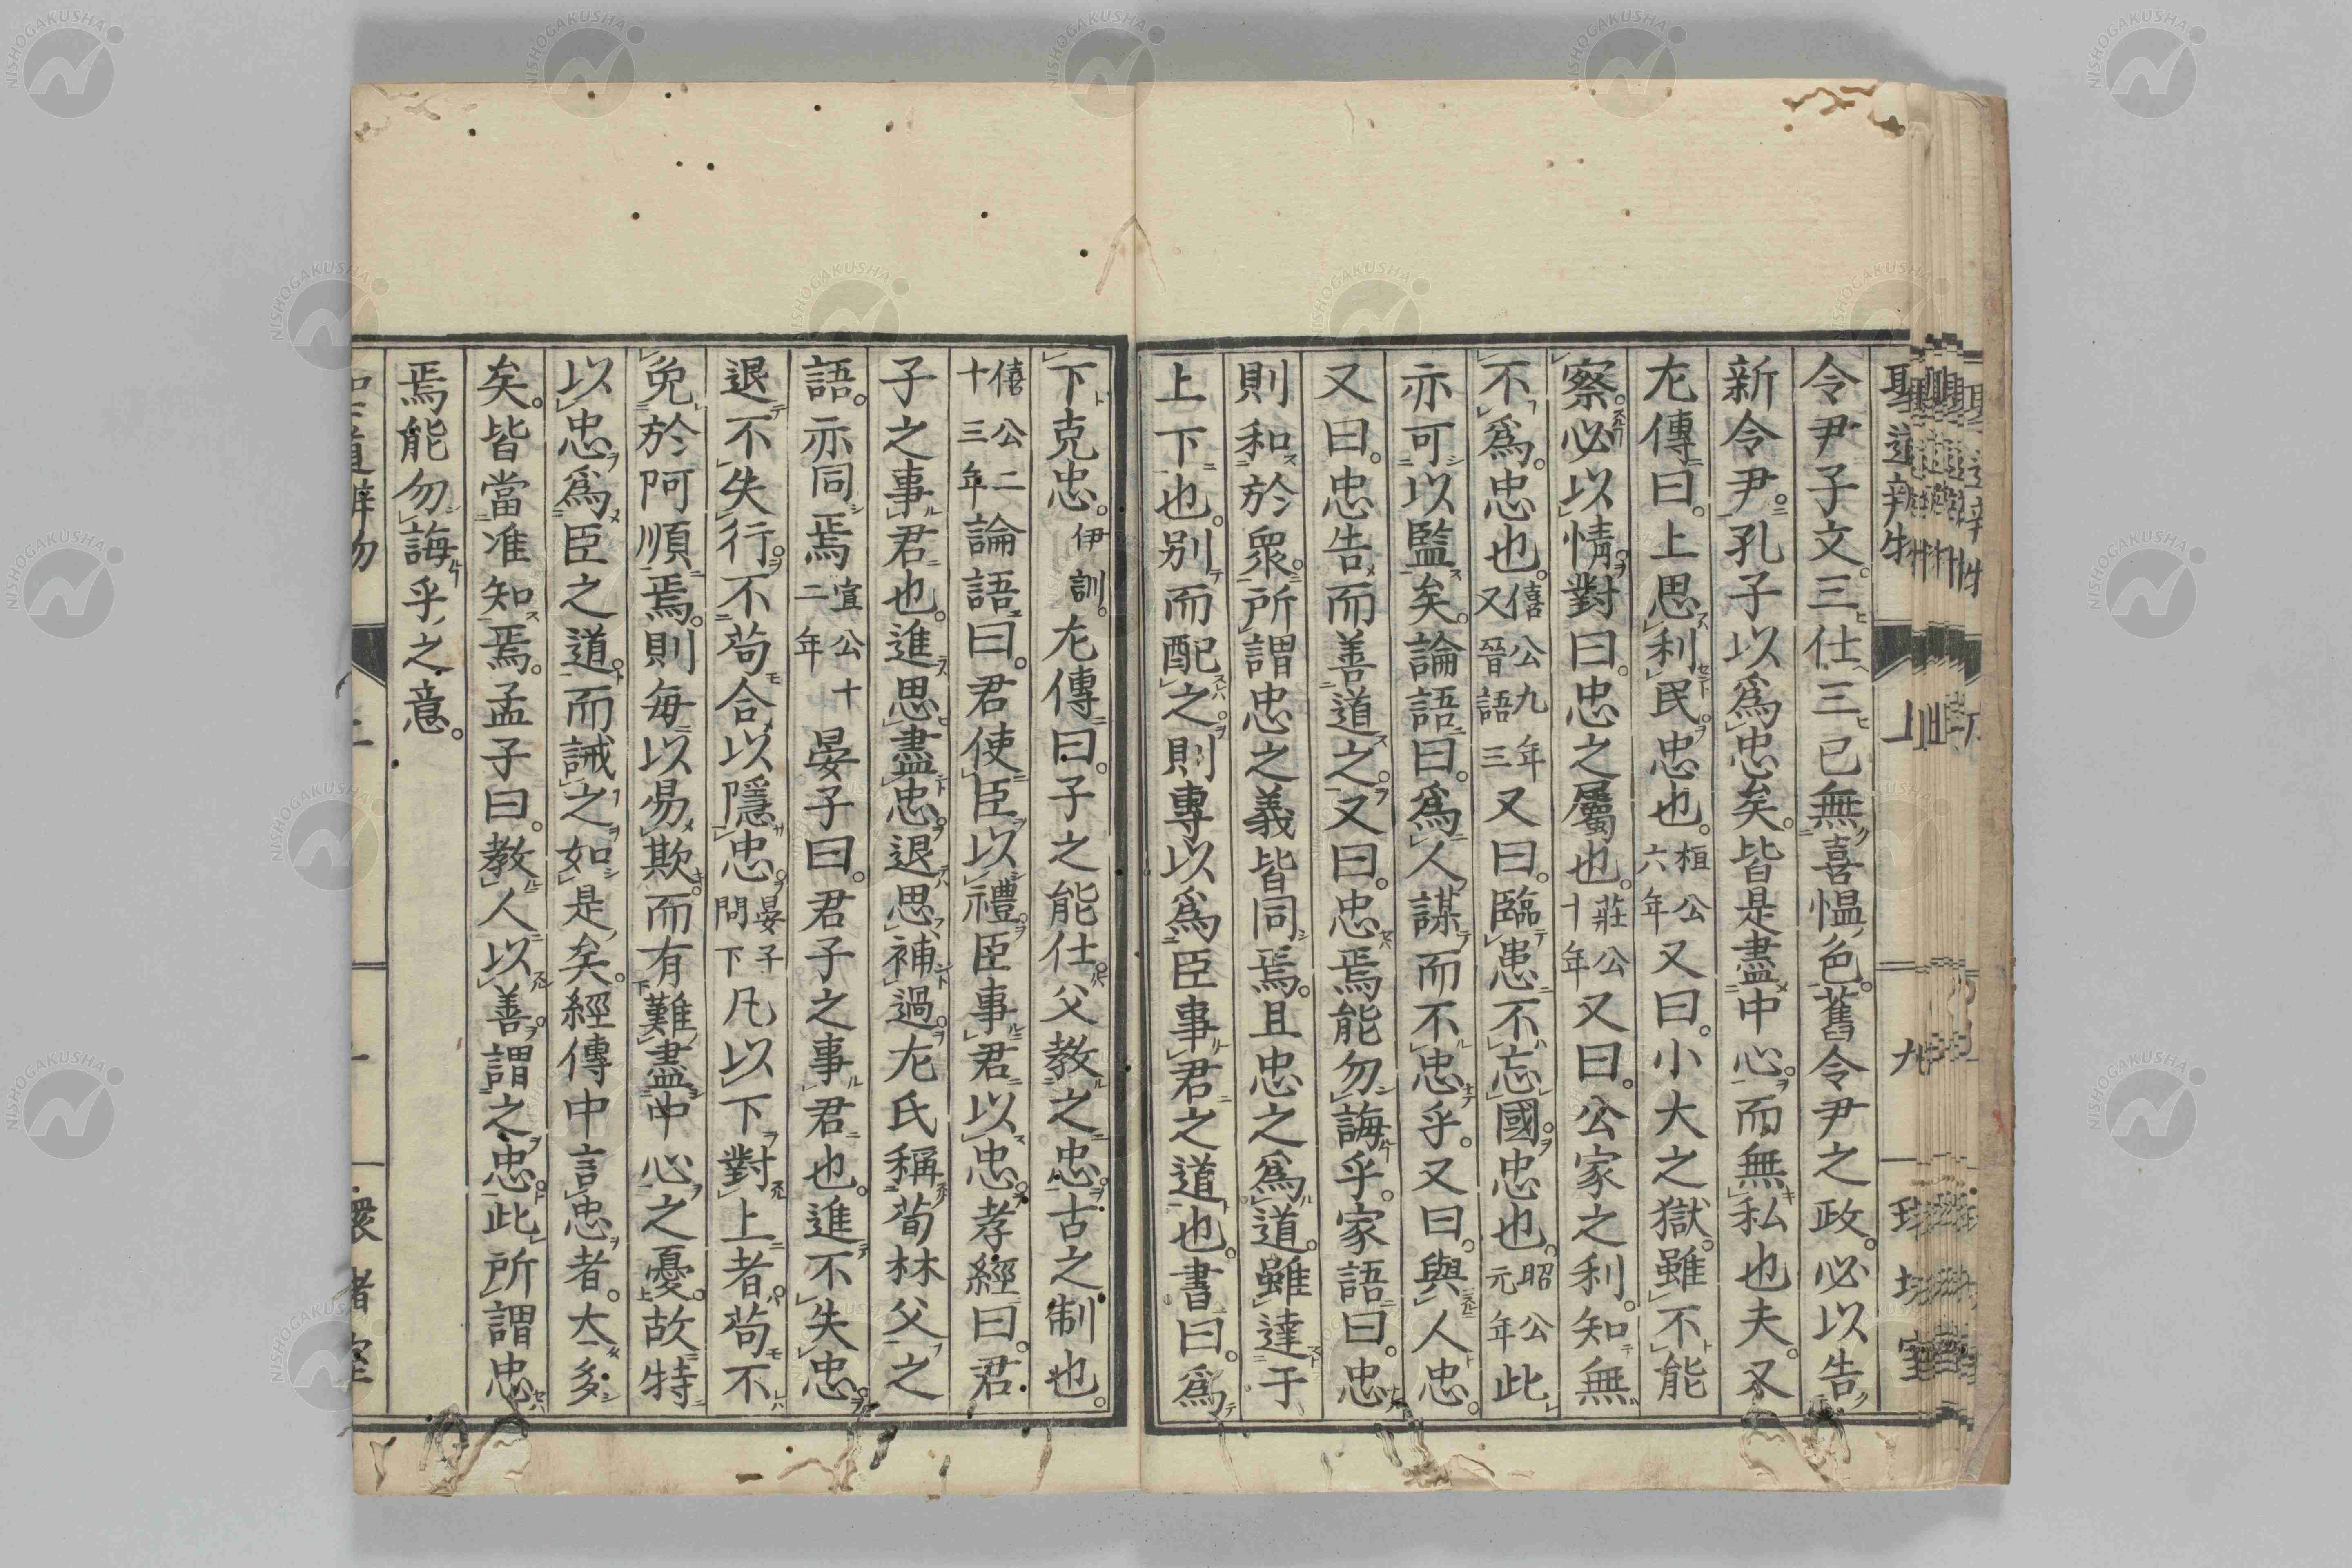 令尹子文。三仕三已無喜慍色。舊令尹之政。必以告
新令尹。孔子以爲忠矣。皆是盡中心。而無私也夫。又
左傳曰。上思利民忠也。桓公六年又曰。小大之獄。雖不能
察。必以情。對曰。忠之屬也。莊公十年又曰。公家之利。知無
不爲。忠也。僖公九年又晉語三又曰。臨患不忘國。忠也。昭公元年此
亦可以監矣。論語曰。爲人謀而不忠乎。又曰。與人忠。
又曰。忠告而善道之。又曰。忠焉能勿誨乎。家語曰。忠
則和於衆。所謂忠之義皆同焉。且忠之爲道。雖達于
上下也。別而配之。則專以爲臣事君之道也。書曰。爲
下克忠。伊訓。左傳曰。子之能仕。父教之忠。古之制也。
僖公二十三年論語曰。君使臣以禮。臣事君以忠。孝經曰。君
子之事君也。進思盡忠。退思補過。左氏稱荀林父之
語。亦同焉宣公十二年晏子曰。君子之事君也。進不失忠。
退不失行。不苟合以隱忠。晏子問下凡以下對上者。苟不
免於阿順焉。則每以易欺。而有難盡中心之憂。故特
以忠爲臣之道。而誡之如是矣。經傳中言忠者。大多
矣。皆當准知焉。孟子曰。教人以善。謂之忠。此所謂忠
焉能勿誨乎之意。
聖道辨物
上
九